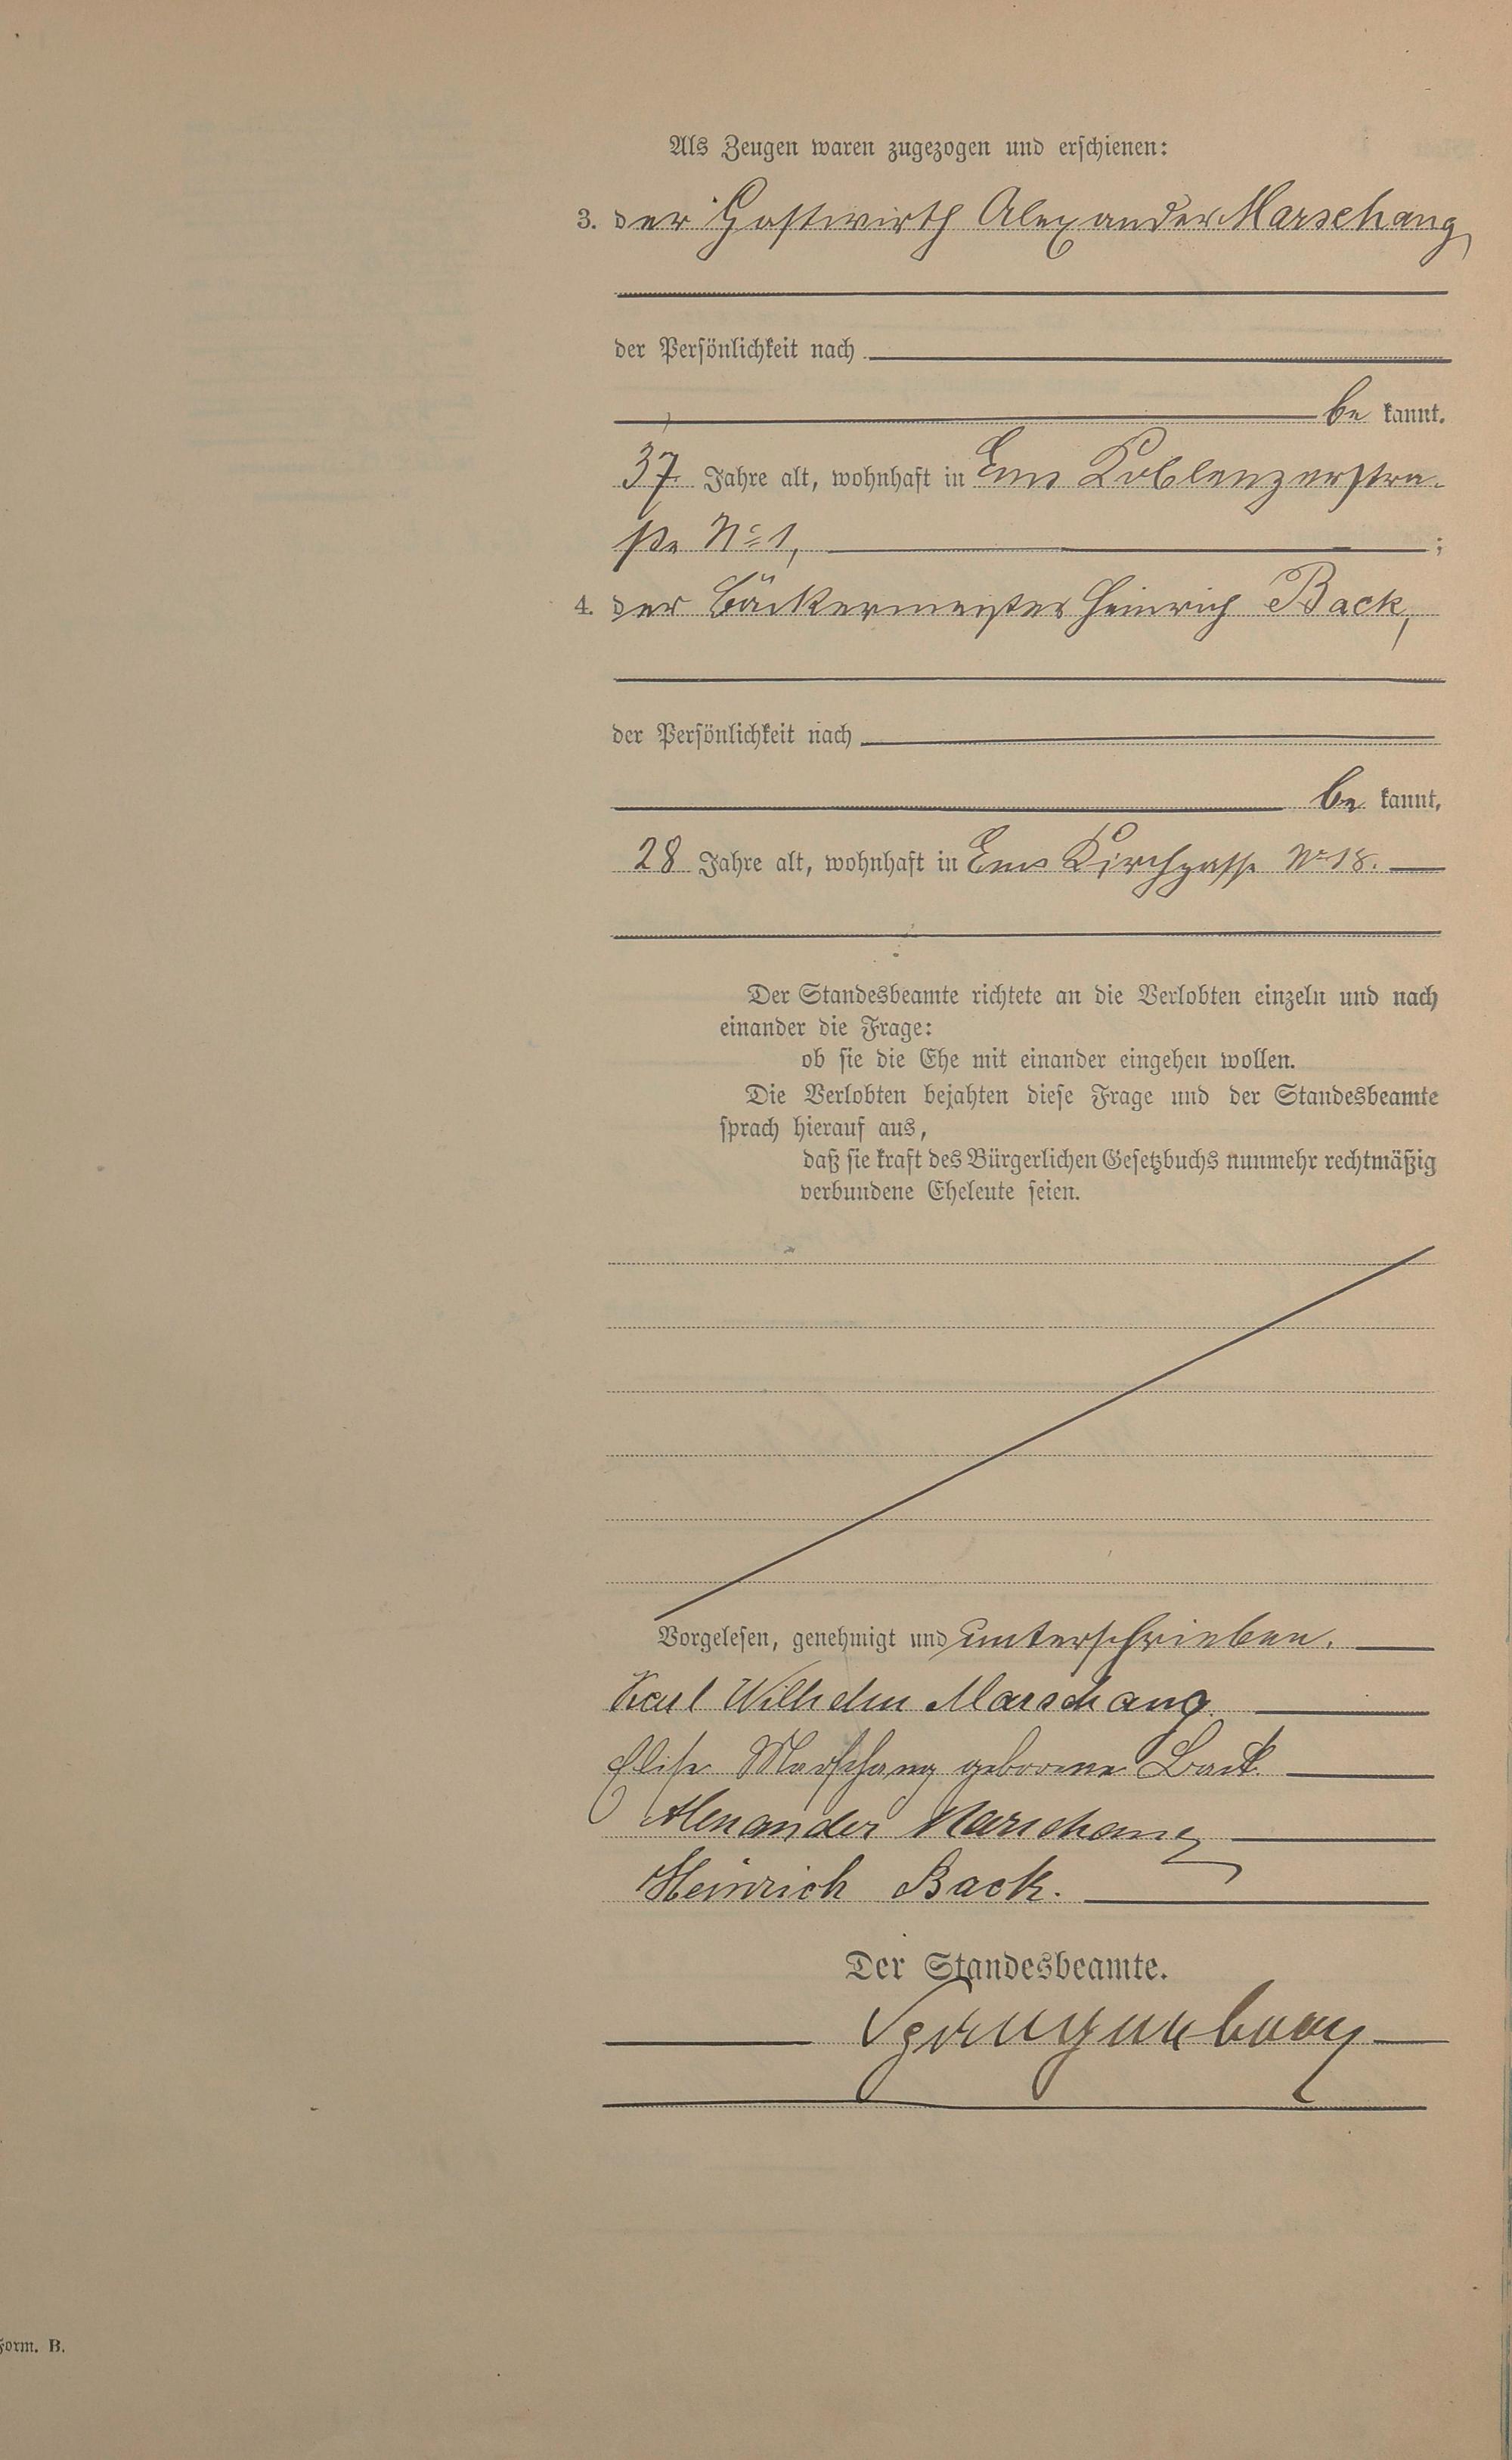 Als Zeugen waren zugezogen und erschienen:
3. der Gastwirth Alexander Marschang,
der Persönlichkeit nach
be kannt,
37 Jahre alt, wohnhaft in Ems Koblenzerstra-
ße No 1, ;
4. der Bäckermeister Heinrich Back,
der Persönlichkeit nach
be kannt,
28 Jahre alt, wohnhaft in Ems Kirchgasse No 18.
Der Standesbeamte richtete an die Verlobten einzeln und nach
einander die Frage:
ob sie die Ehe mit einander eingehen wollen.
Die Verlobten bejahten diese Frage und der Standesbeamte
sprach hierauf aus,
daß sie kraft des Bürgerlichen Gesetzbuchs nunmehr rechtmäßig
verbundene Eheleute seien.
Vorgelesen, genehmigt und unterschrieben.
Karl Wilhelm Marschang
Elise Marschang geborene Back.
Alexander Marschang
Heinrich Back.
Der Standesbeamte.
Form. B.